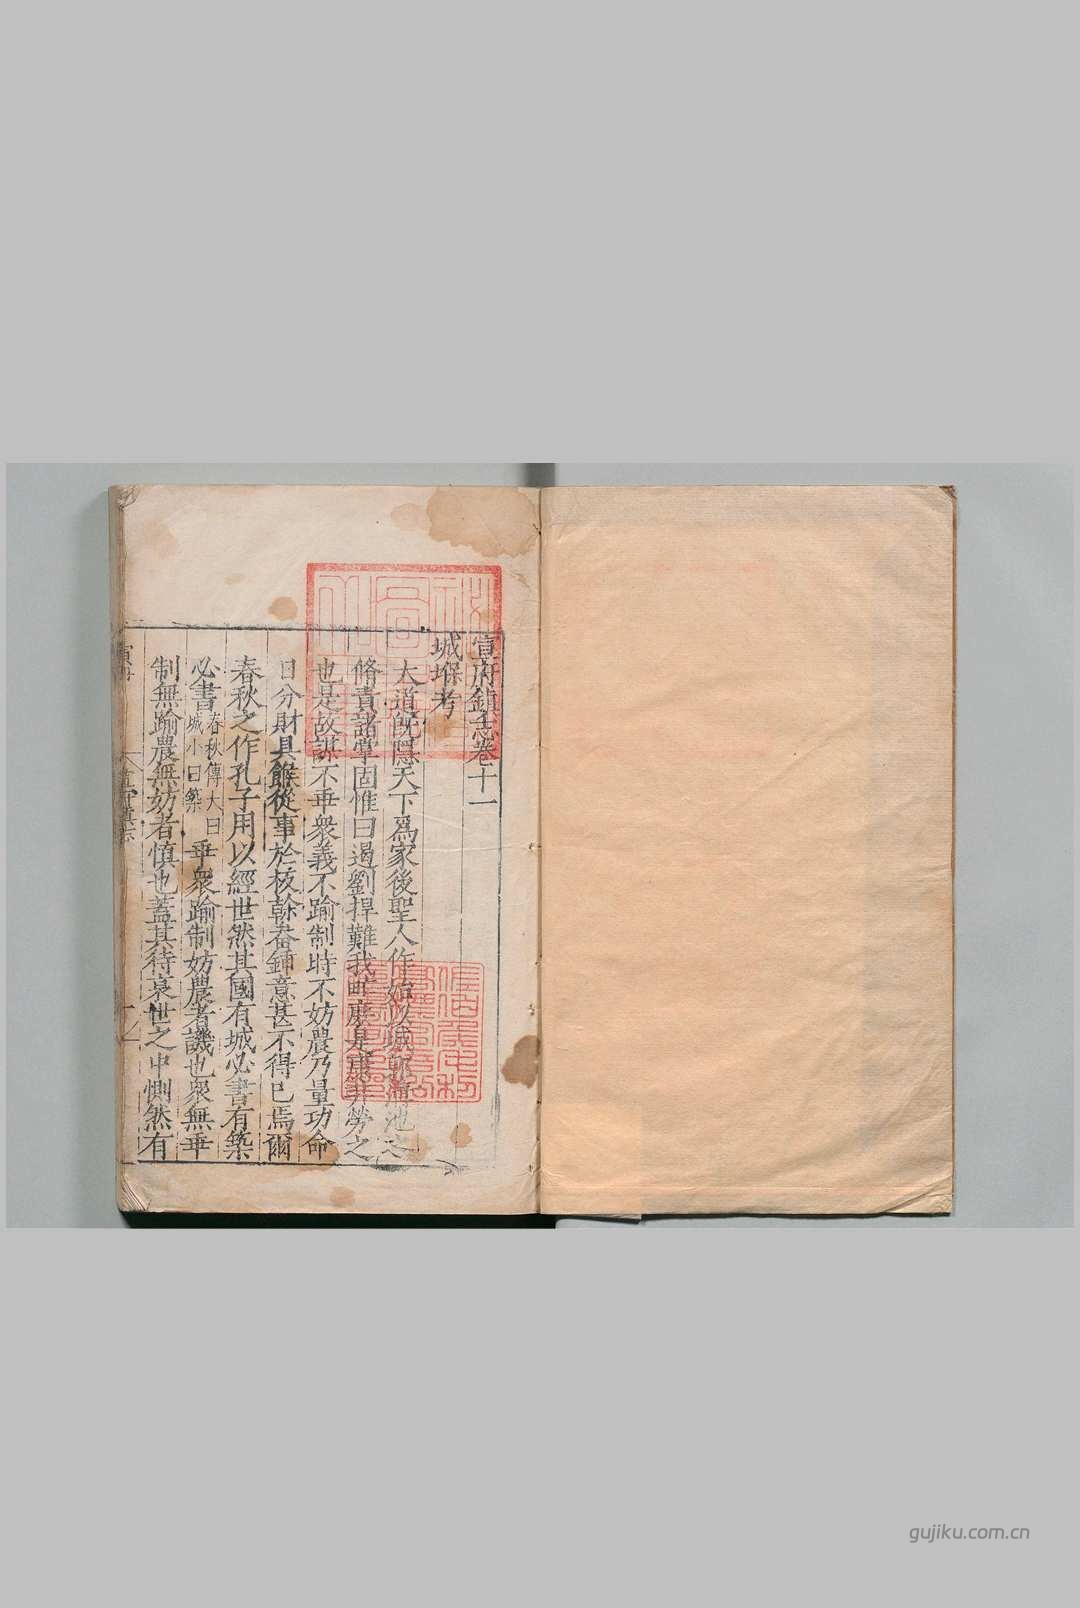 宣府鎮志卷十一
城堡考
大道既隱天下爲家後聖人作始以城郭溝池之
脩責諸掌固惟曰遏劉捍難我
也是故謀不乖衆義不踰制時不妨農乃量功命
日分財具餱從事於板榦畚鍤意甚不得已焉爾
春秋之作孔子用以經世然其國有城必書有築
必書春秋傳大曰城小曰築乖衆踰制妨農者譏也衆無乖
制無踰農無妨者慎也蓋其待衰世之中惻然有
gujiku.com.cn